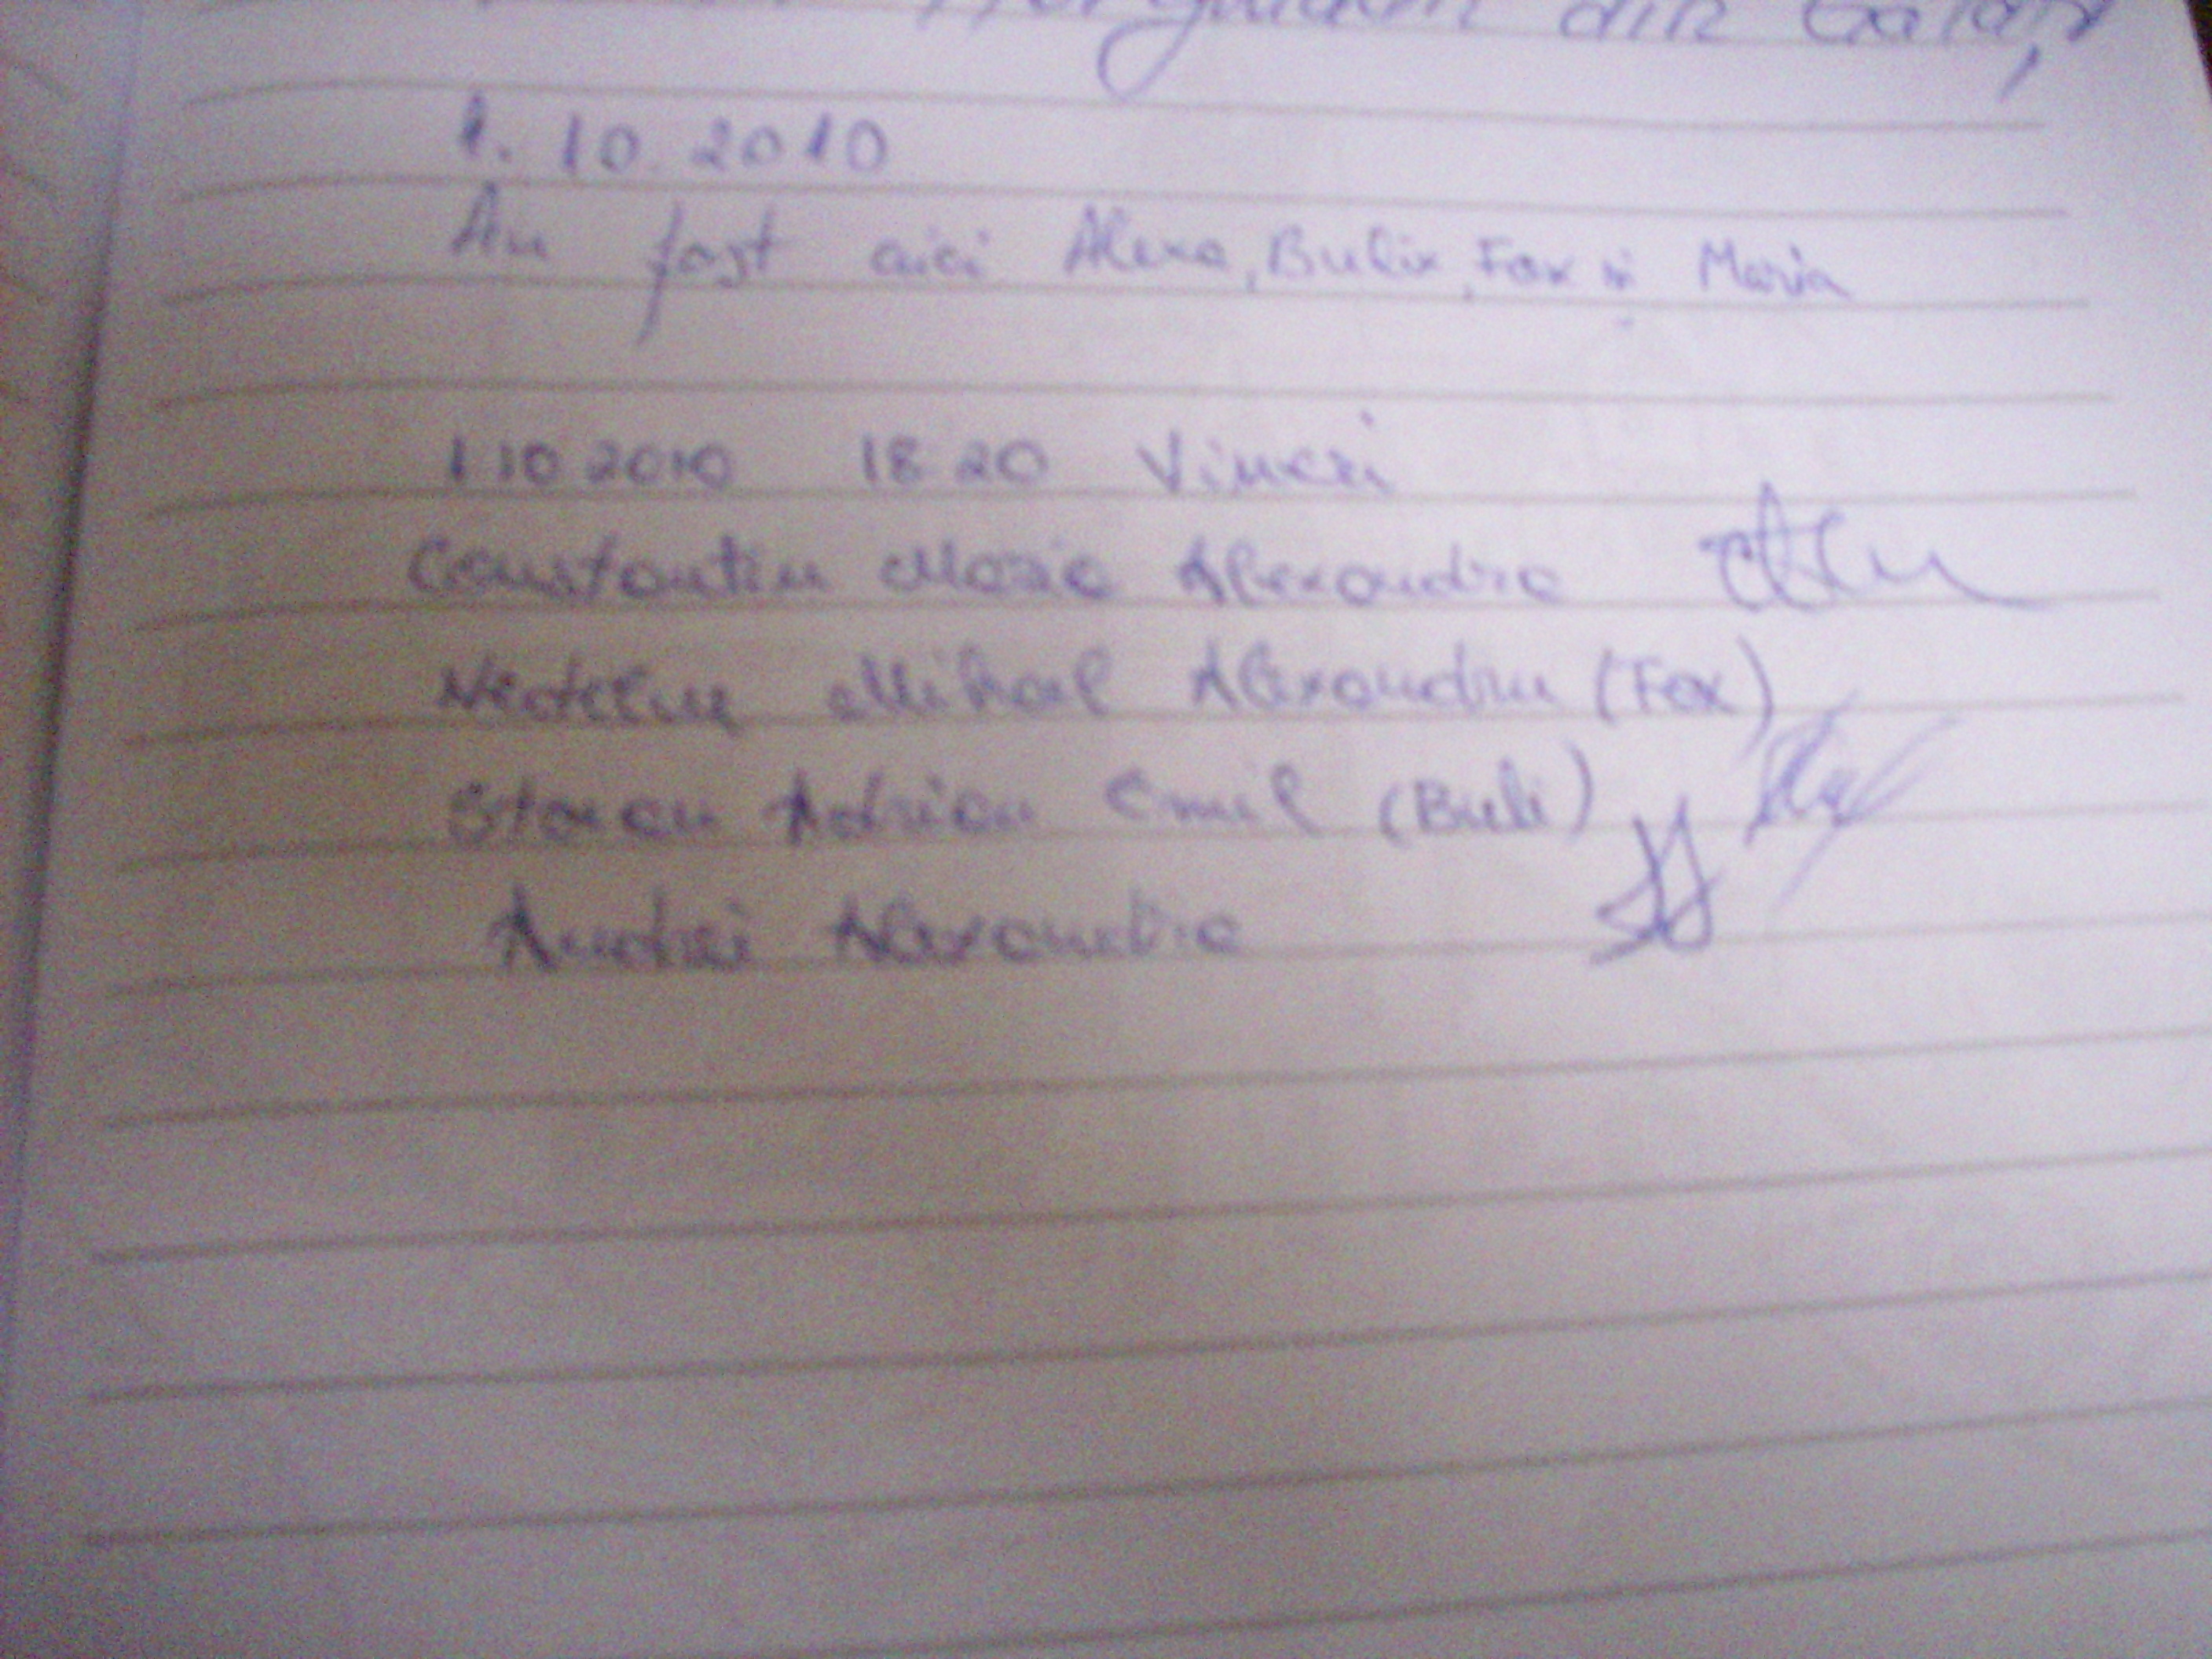 din Galați
1. 10. 2010
Au fost aici Alexa, Bulix, Fox și Maria
1 10 2010 18 20 Vineri
Constantin Maria Alexandra
Nedelcu Mihail Alexandru (Fox)
Adrian Emil (Buli)
Andrei Alexandra